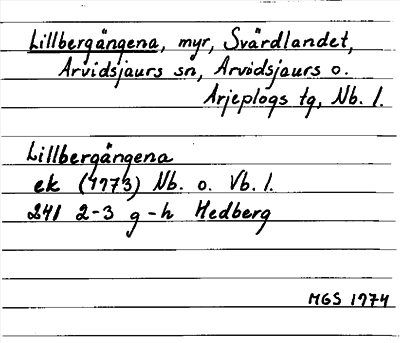 Lillbergängena, myr, Svärdlandet,
Arvidsjaurs sn, Arvidsjaurs o.
Arjeplogs tg, Nb. l.
Lillbergängena
ek (1773) Nb. o. Vb. l.
241 2-3 g-h Hedberg
MGS 1974